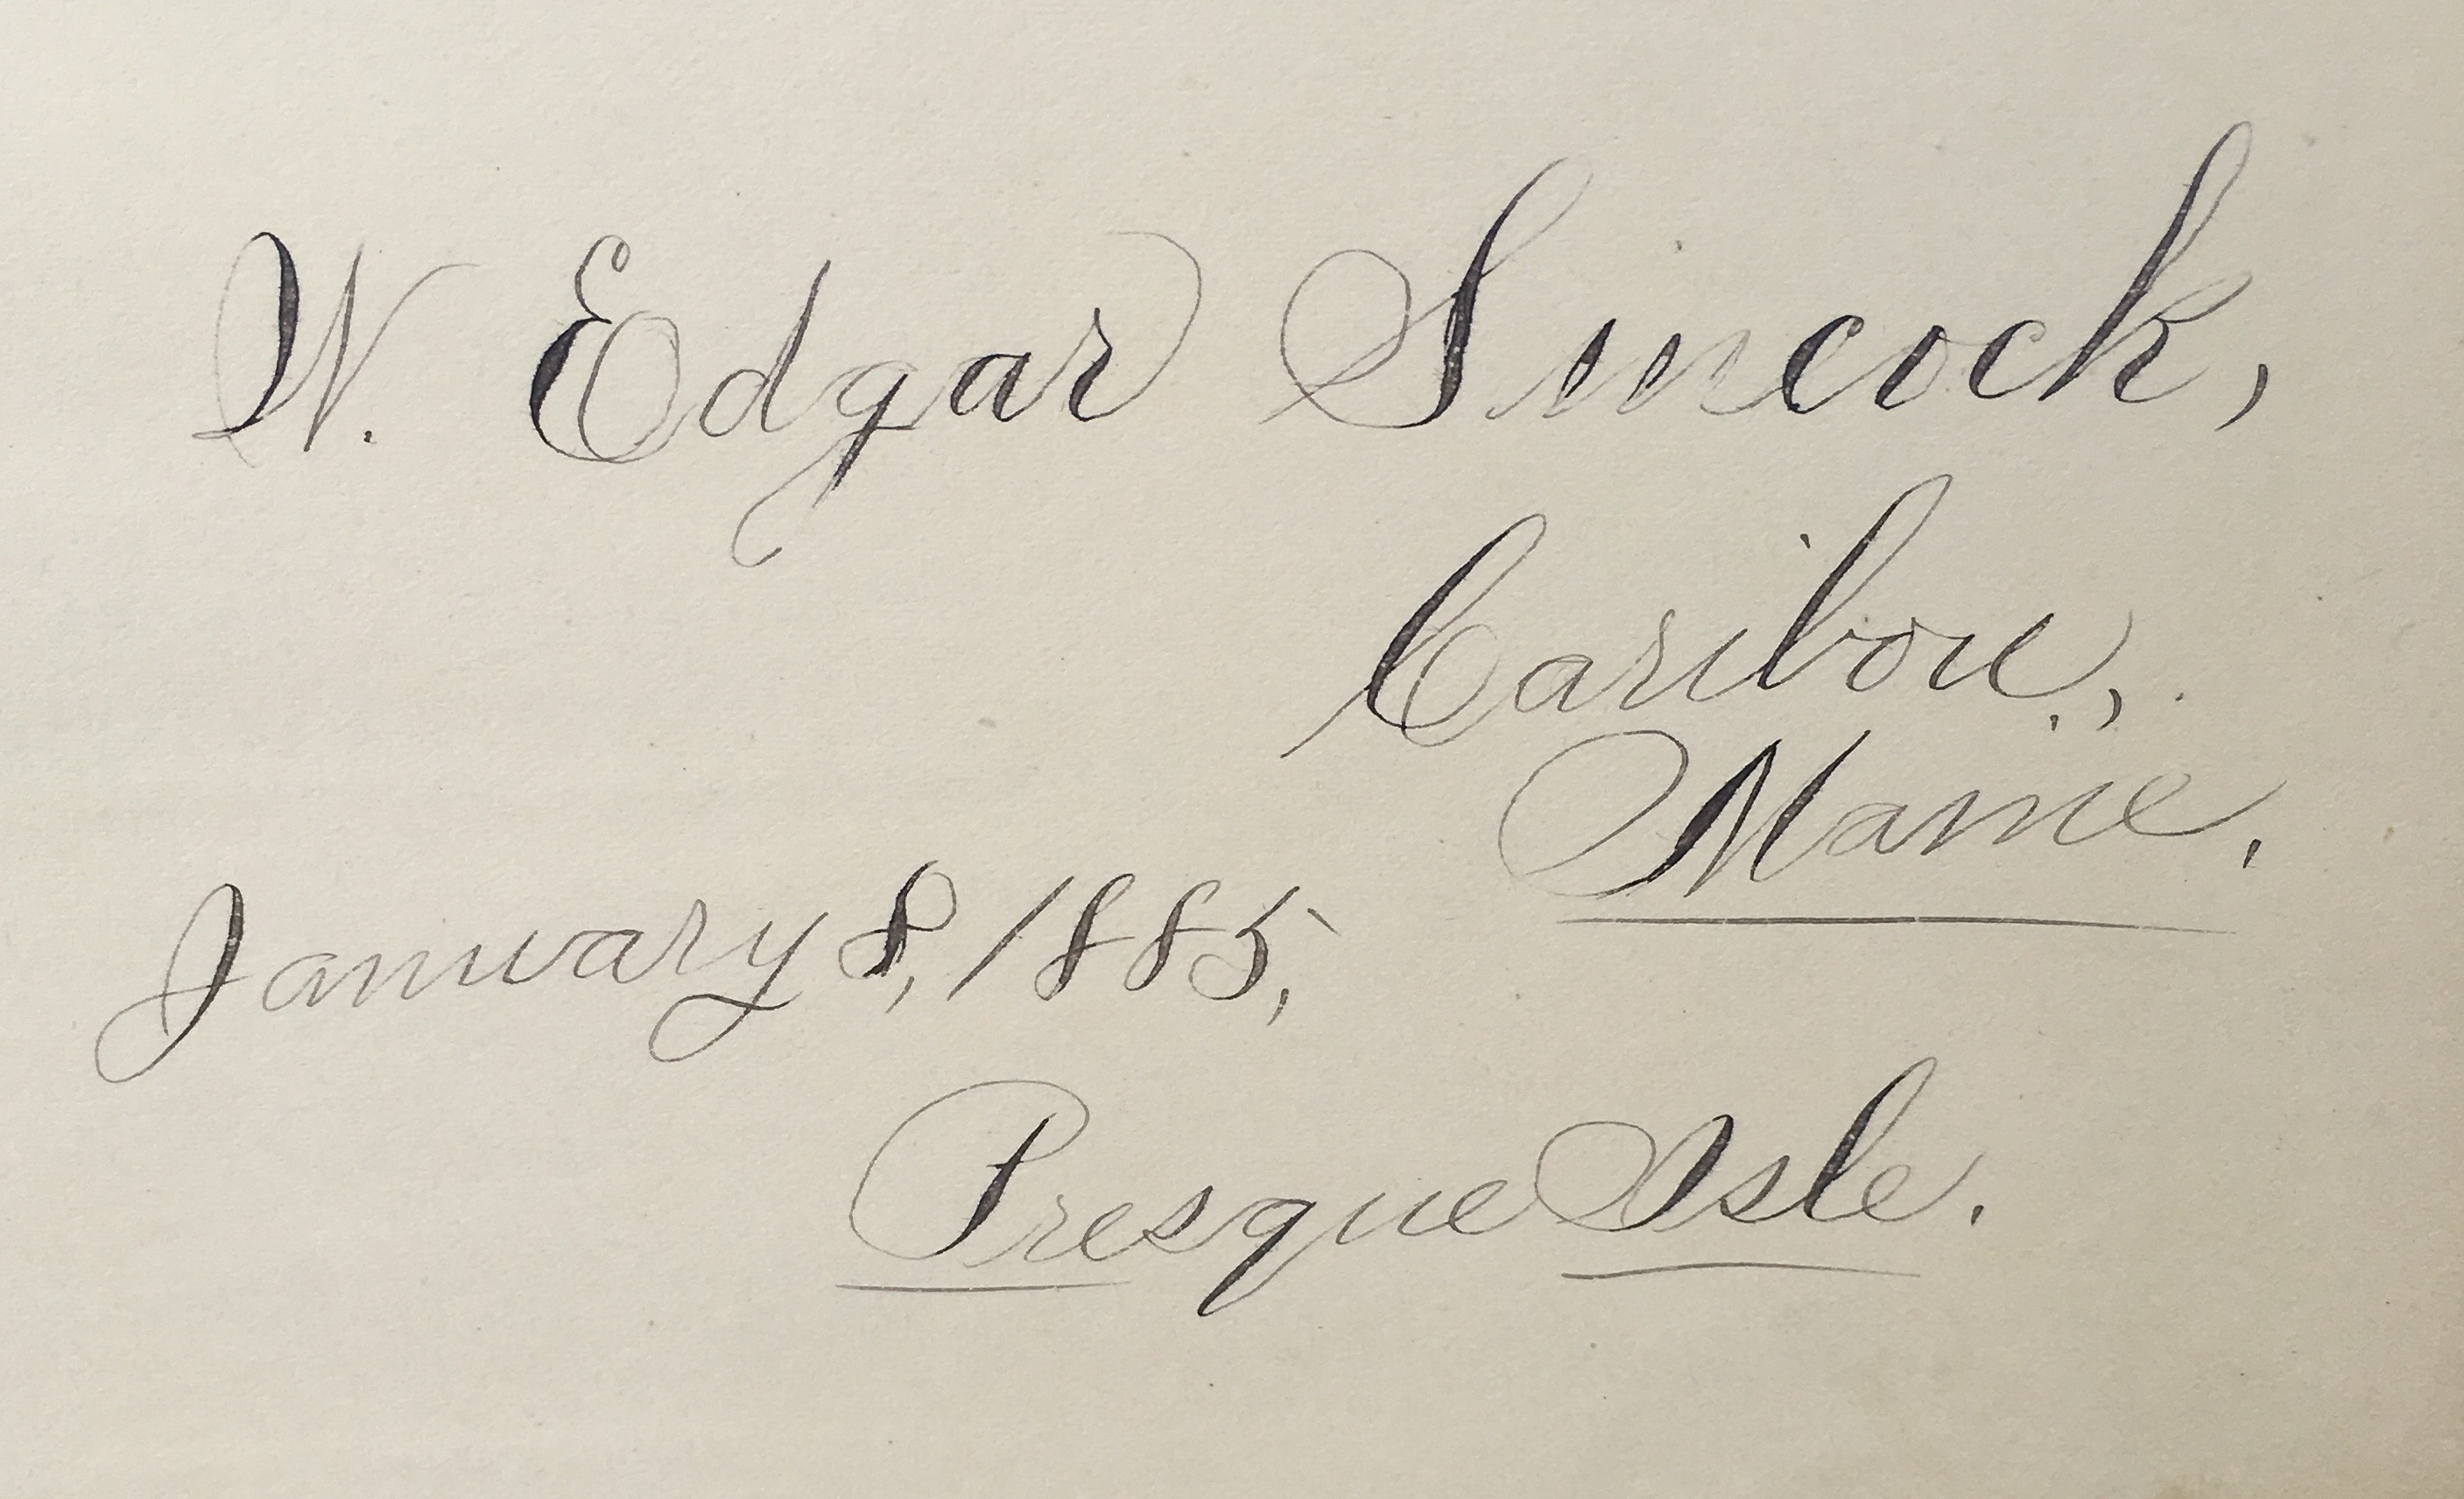 W. Edgar Sincock,
Caribou,
Maine.
January 8, 1885,
Presque Isle.